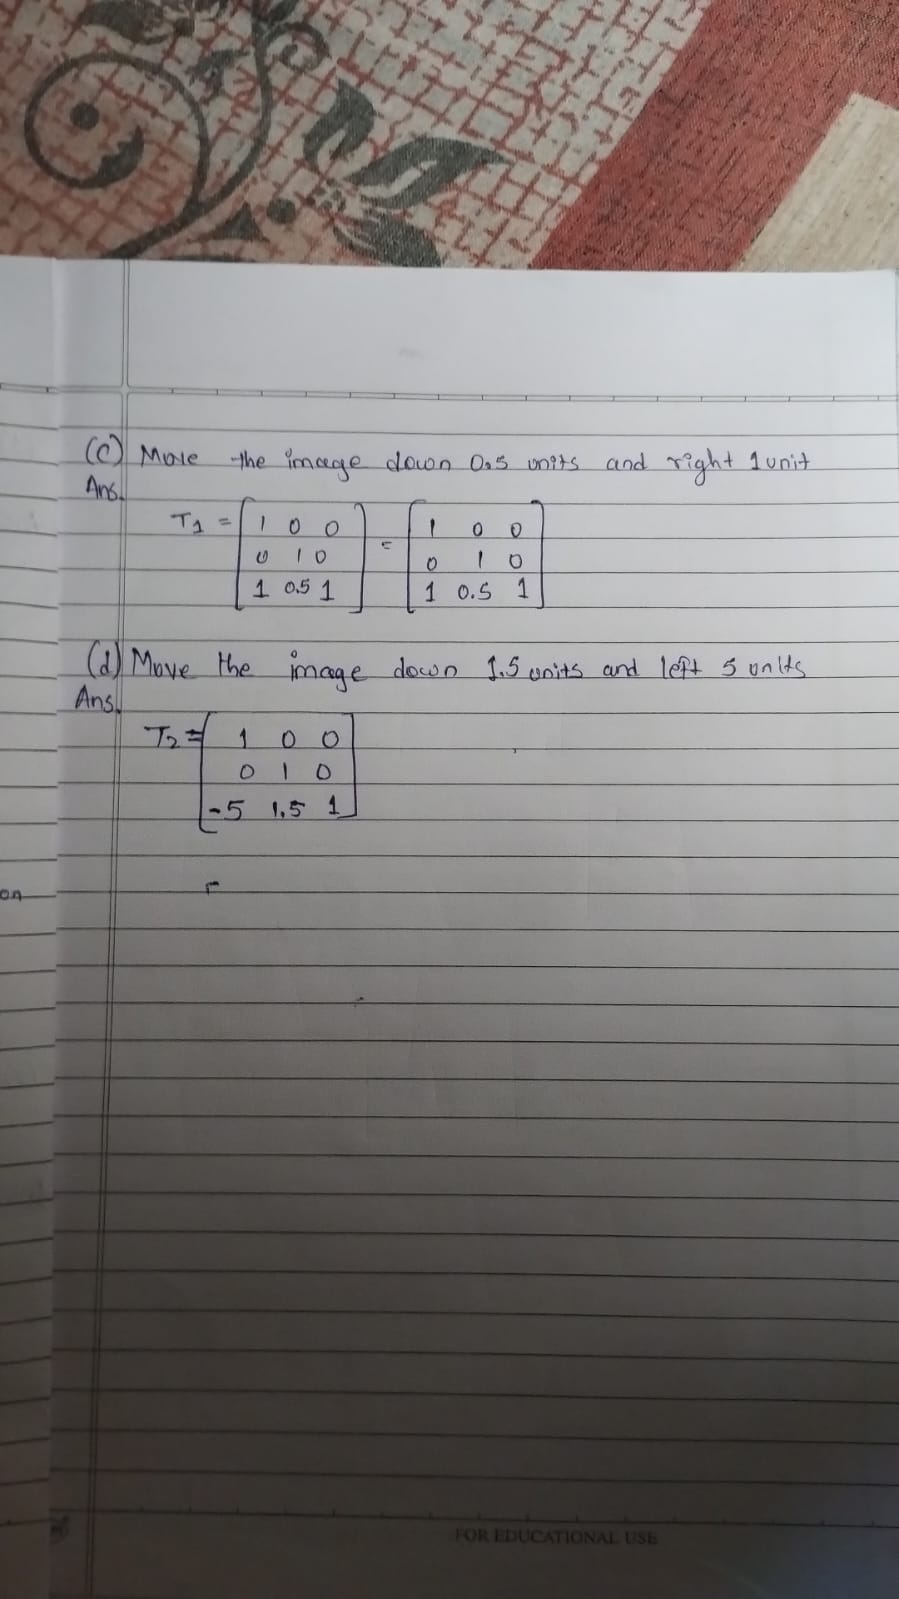 (C) Move the image down 0.5 units and right 1 unit
Ans.
T1 = [ 1 0 0 ] = [ 1 0 0 ]
0 1 0 0 1 0
1 0.5 1 1 0.5 1
(d) Move the image down 1.5 units and left 5 units
Ans.
T2 = [ 1 0 0 ]
0 1 0
-5 1.5 1
on
FOR EDUCATIONAL USE